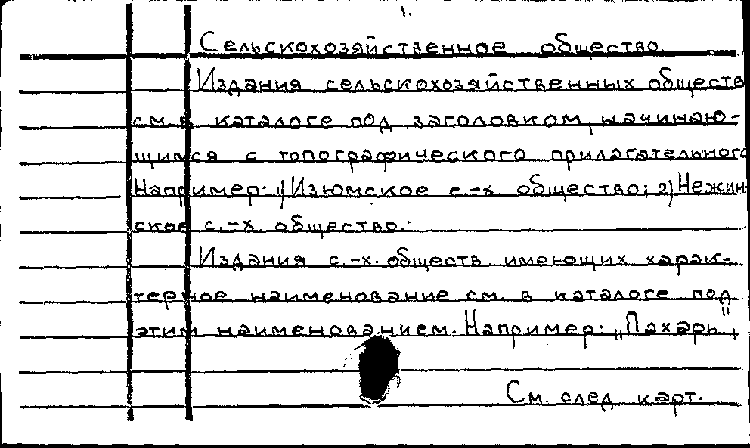 1.
Сельскохозяйственное общество.
Издания сельскохозяйственных обществ
см. в каталоге под заголовком, начинаю-
щимся с топографического прилагательного
Например: 1) Изюмское с.-х общество; 2) Нежин-
ское с.-х. общество.
Издания с.-х. обществ, имеющих харак-
терное наименование см. в каталоге под
этим наименованием. Например: „Пахарь",
См. след карт.